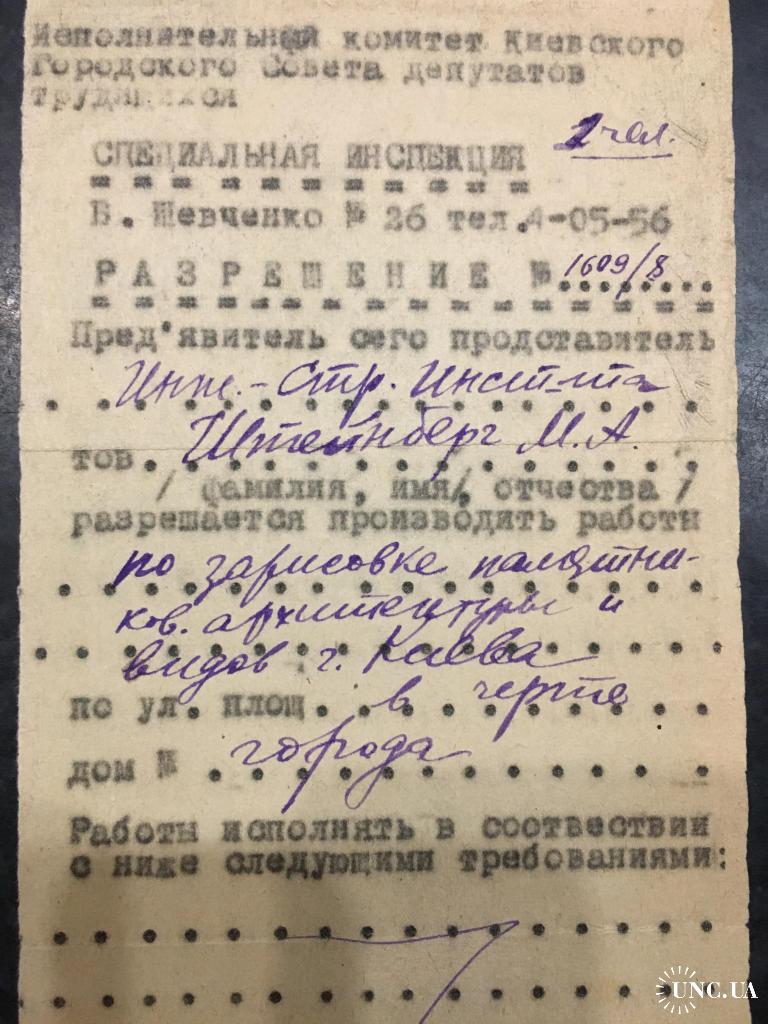 Исполнительный комитет Киевского
Городского Совета депутатов
трудящихся
1 чел.
СПЕЦИАЛЬНАЯ ИНСПЕКЦИЯ
Б. Шевченко № 26 тел.4-05-56
РАЗРЕШЕНИЕ № 1609/8
Пред'явитель сего продставитель
Инж.-Стр. Инст-та
тов. Штейнберг М.А.
/ фамилия, имя, отчества /
разрешается производить работы
по зарисовке памятни-
ков архитектуры и
видов г. Киева
по ул. площ. в черте
дом № города
Работы исполнять в соотвествии
с ниже следующими требованиями:
UNC.UA